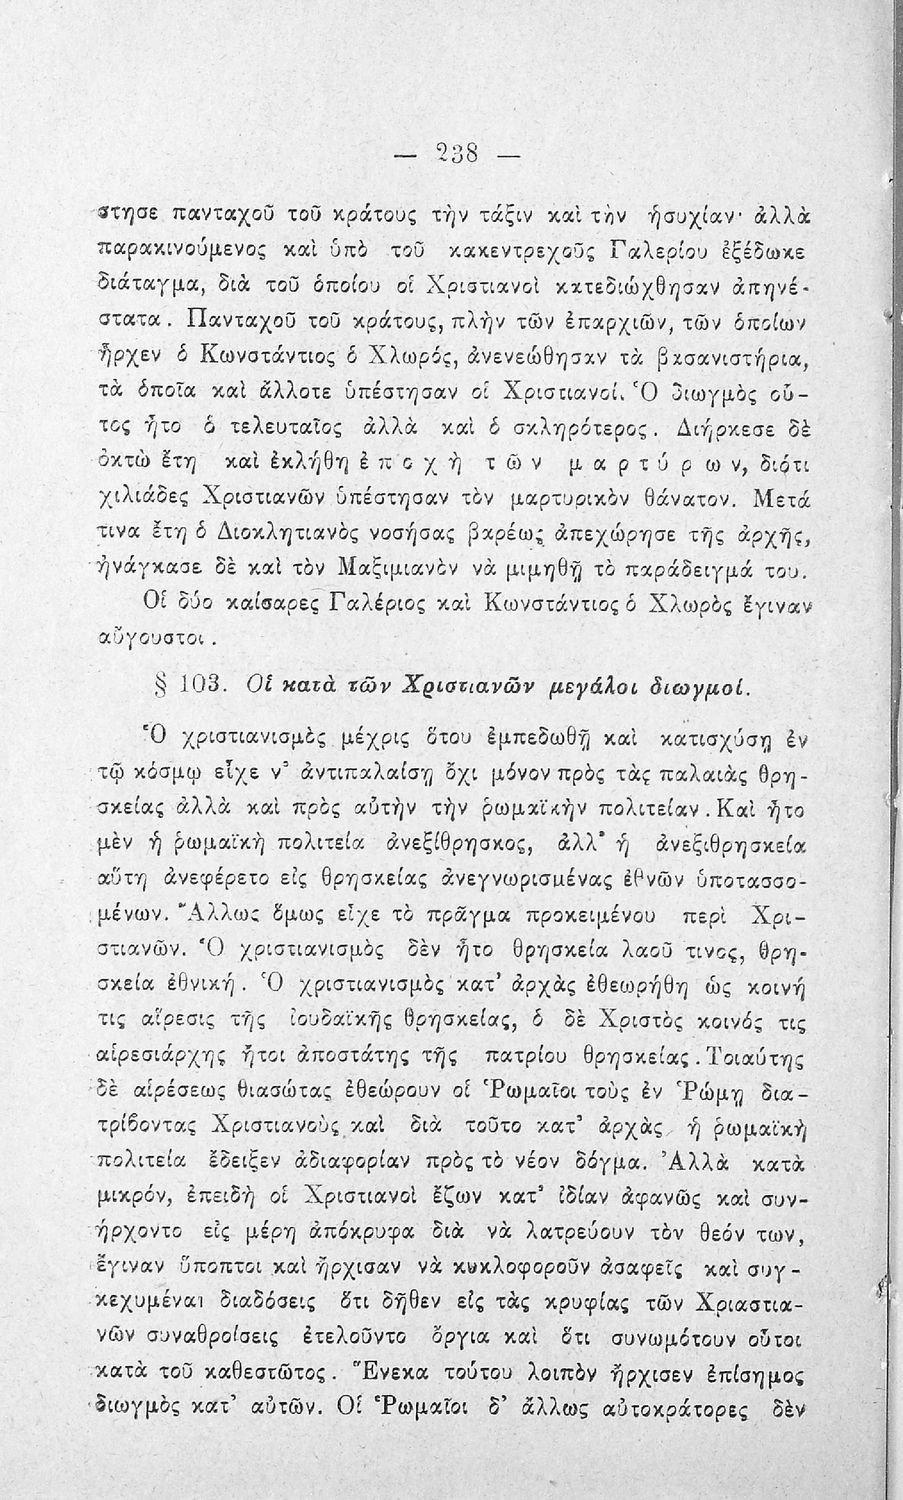 — 238 —
στησε πανταχοῦ τοῦ κράτους τὴν τάξιν καὶ τὴν ἡσυχίαν· ἀλλὰ
παρακινούμενος καὶ ὑπὸ τοῦ κακεντρεχοῦς Γαλερίου ἐξέδωκε
διάταγμα, διὰ τοῦ ὁποίου οἱ Χριστιανοὶ κατεδιώχθησαν ἀπηνέ-
στατα. Πανταχοῦ τοῦ κράτους, πλὴν τῶν ἐπαρχιῶν, τῶν ὁποίων
ἦρχεν ὁ Κωνστάντιος ὁ Χλωρός, ἀνενεώθησαν τὰ βασανιστήρια,
τὰ ὁποῖα καὶ ἄλλοτε ὑπέστησαν οἱ Χριστιανοί. Ὁ διωγμὸς οὗ-
τος ἦτο ὁ τελευταῖος ἀλλὰ καὶ ὁ σκληρότερος. Διήρκεσε δὲ
ὀκτὼ ἔτη καὶ ἐκλήθη ἐποχὴ τῶν μαρτύρων, διότι
χιλιάδες Χριστιανῶν ὑπέστησαν τὸν μαρτυρικὸν θάνατον. Μετά
τινα ἔτη ὁ Διοκλητιανὸς νοσήσας βαρέως ἀπεχώρησε τῆς ἀρχῆς,
ἠνάγκασε δὲ καὶ τὸν Μαξιμιανὸν νὰ μιμηθῇ τὸ παράδειγμά του.
Οἱ δύο καίσαρες Γαλέριος καὶ Κωνστάντιος ὁ Χλωρὸς ἔγιναν
αὔγουστοι.
§ 103. Οἱ κατὰ τῶν Χριστιανῶν μεγάλοι διωγμοί.
Ὁ χριστιανισμὸς μέχρις ὅτου ἐμπεδωθῇ καὶ κατισχύσῃ ἐν
τῷ κόσμῳ εἶχε ν’ ἀντιπαλαίσῃ ὄχι μόνον πρὸς τὰς παλαιὰς θρη-
σκείας ἀλλὰ καὶ πρὸς αὐτὴν τὴν ῥωμαϊκὴν πολιτείαν. Καὶ ἦτο
μὲν ἡ ῥωμαϊκὴ πολιτεία ἀνεξίθρησκος, ἀλλ’ ἡ ἀνεξιθρησκεία
αὕτη ἀνεφέρετο εἰς θρησκείας ἀνεγνωρισμένας ἐθνῶν ὑποτασσο-
μένων. Ἄλλως ὅμως εἶχε τὸ πρᾶγμα προκειμένου περὶ Χρι-
στιανῶν. Ὁ χριστιανισμὸς δὲν ἦτο θρησκεία λαοῦ τινος, θρη-
σκεία ἐθνική. Ὁ χριστιανισμὸς κατ’ ἀρχὰς ἐθεωρήθη ὡς κοινή
τις αἵρεσις τῆς ἰουδαϊκῆς θρησκείας, ὁ δὲ Χριστὸς κοινός τις
αἱρεσιάρχης ἤτοι ἀποστάτης τῆς πατρίου θρησκείας. Τοιαύτης
δὲ αἱρέσεως θιασώτας ἐθεώρουν οἱ Ῥωμαῖοι τοὺς ἐν Ῥώμῃ δια-
τρίβοντας Χριστιανοὺς καὶ διὰ τοῦτο κατ’ ἀρχὰς ἡ ῥωμαϊκὴ
πολιτεία ἔδειξεν ἀδιαφορίαν πρὸς τὸ νέον δόγμα. Ἀλλὰ κατὰ
μικρόν, ἐπειδὴ οἱ Χριστιανοὶ ἔζων κατ’ ἰδίαν ἀφανῶς καὶ συν-
ήρχοντο εἰς μέρη ἀπόκρυφα διὰ νὰ λατρεύουν τὸν θεόν των,
ἔγιναν ὕποπτοι καὶ ἤρχισαν νὰ κυκλοφοροῦν ἀσαφεῖς καὶ συγ-
κεχυμέναι διαδόσεις ὅτι δῆθεν εἰς τὰς κρυφίας τῶν Χριαστια-
νῶν συναθροίσεις ἐτελοῦντο ὄργια καὶ ὅτι συνωμότουν οὗτοι
κατὰ τοῦ καθεστῶτος. Ἕνεκα τούτου λοιπὸν ἤρχισεν ἐπίσημος
διωγμὸς κατ’ αὐτῶν. Οἱ Ῥωμαῖοι δ’ ἄλλως αὐτοκράτορες δὲν